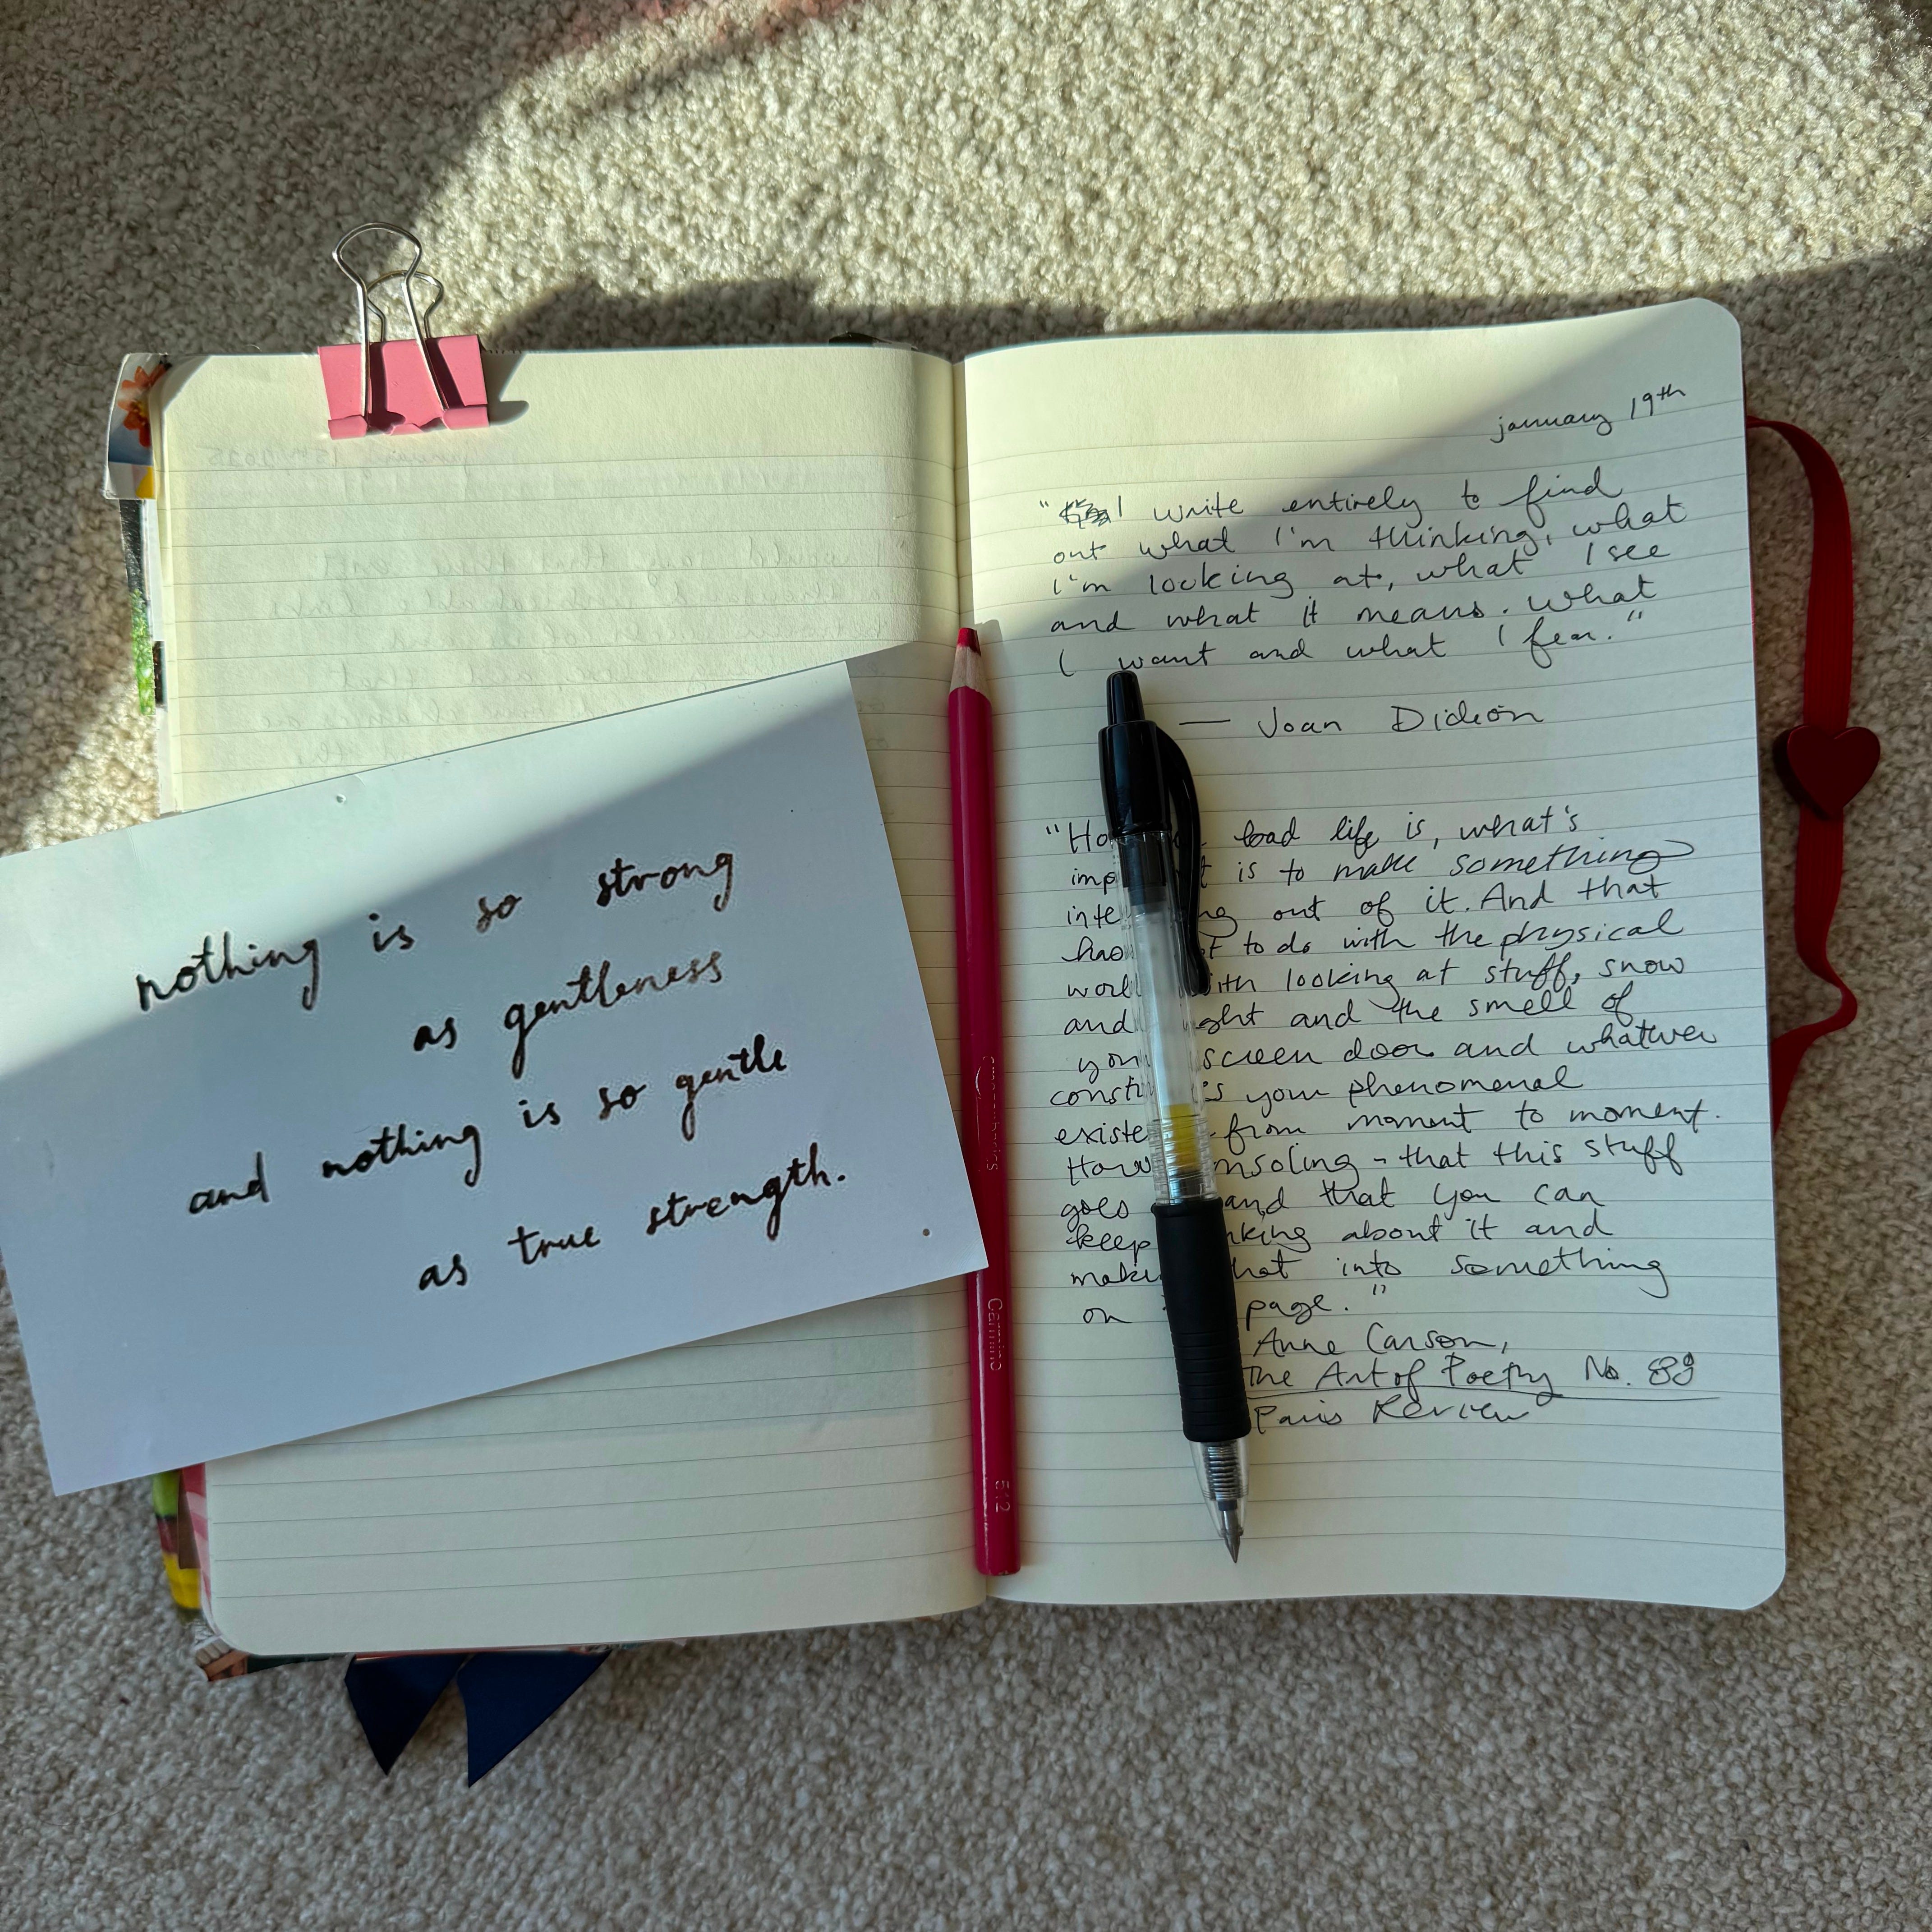 nothing is so strong
as gentleness
and nothing is so gentle
as true strength.
january 19th
"I write entirely to find
out what I'm thinking, what
I'm looking at, what I see
and what it means. What
I want and what I fear."
— Joan Didion
"Ho bad life is, what's
is to make something
out of it. And that
to do with the physical
looking at stuff, snow
and and the smell of
screen door and whatever
your phenomenal
from moment to moment.
How - that this stuff
goes and that you can
keep about it and
into something
on page."
Anne Carson,
The Art of Poetry No. 88
Paris Review
Carmino
512